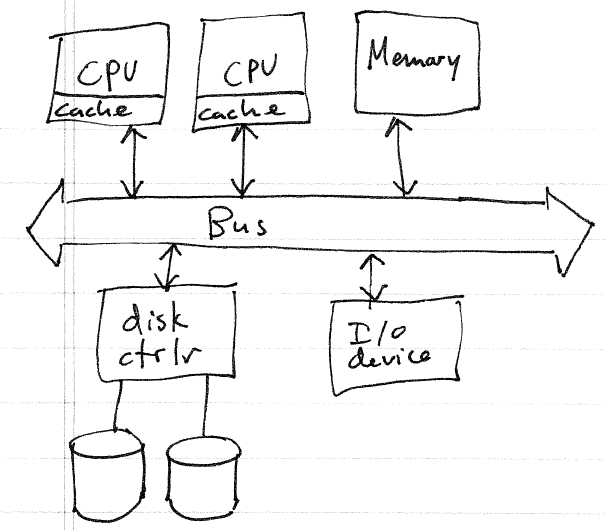 CPU
cache
CPU
cache
Memory
Bus
disk
ctrlr
I/O
device